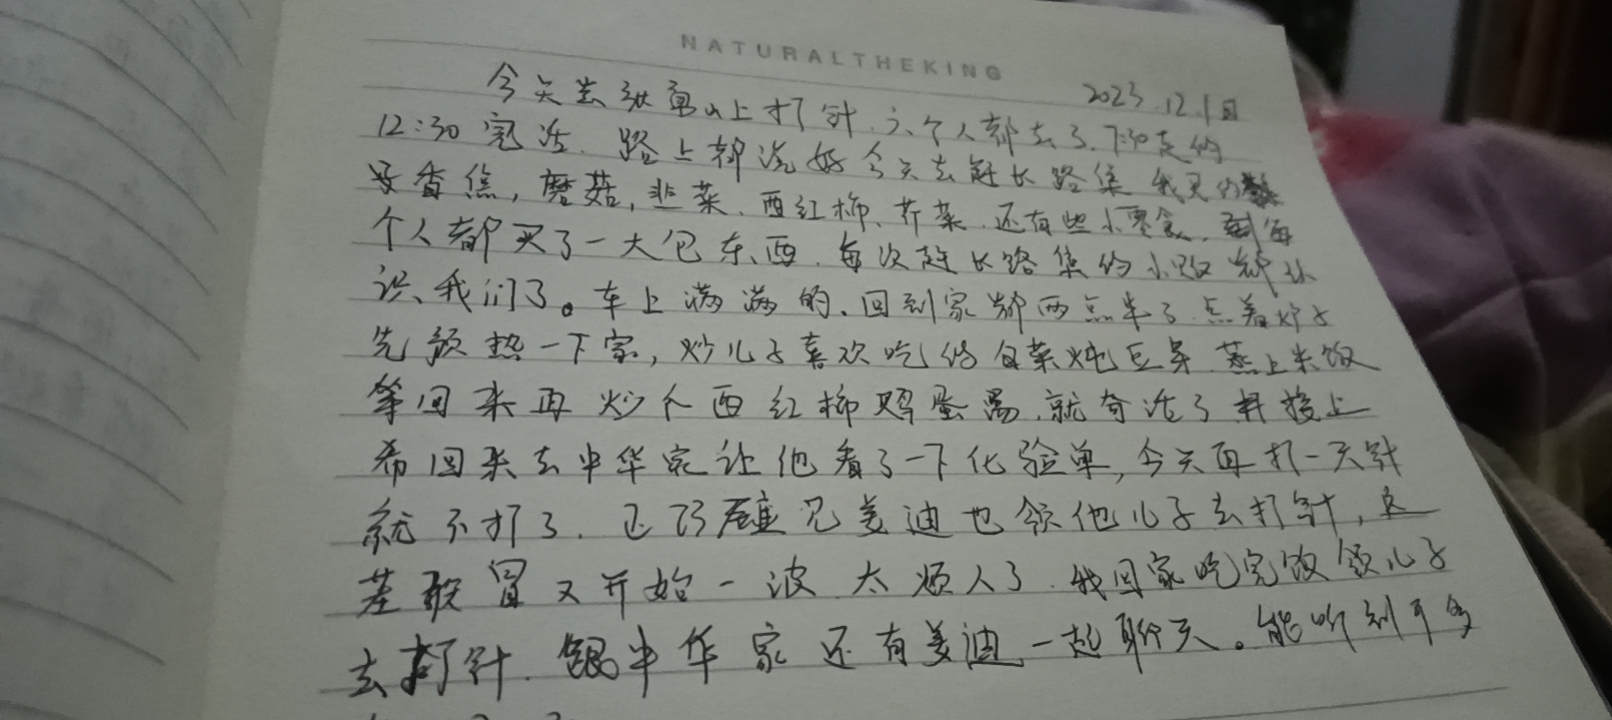 NATURALTHEKING
2023.12.1日
今天去驮章山上打针、六个人都去了、7:30走的
12:30完活、路上都说好今天去赶长路集 我买的
香焦，磨菇，韭菜、西红柿、芹菜、还有些小零食、每
个人都买了一大包东西、每次赶长路集的小贩都认
识我们了。车上满满的、回到家都两点半了、点着炉子
先预热一下家，炒儿子喜欢吃的白菜炖豆芽、蒸上米饭
等回来再炒个西红柿鸡蛋、就齐活了 接上
希回来去中华家让他看了一下化验单，今天再打一天针
就不打了、正巧碰见美迪也领他儿子去打针，这
差敢冒又开始一波、太烦人了、我回家吃完饭领儿子
去打针、中华家还有美迪一起聊天。能听到不多